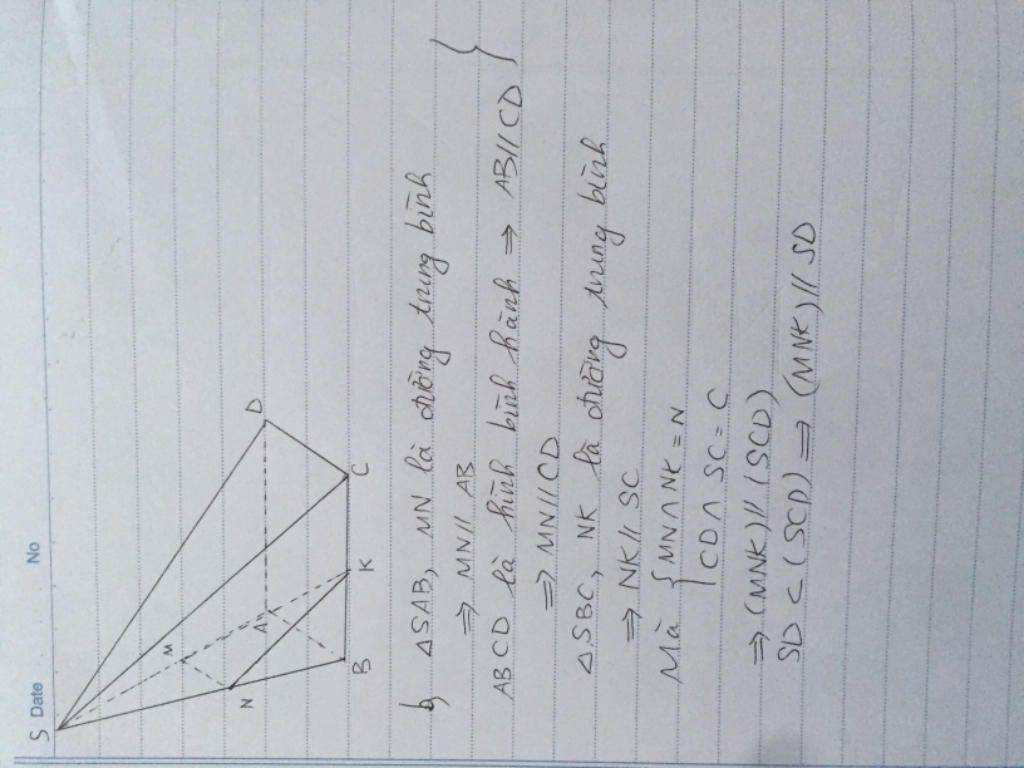 Date No
S
M
N
A
D
B
K
C
b, ΔSAB, MN là đường trung bình
⇒ MN // AB
ABCD là hình bình hành ⇒ AB // CD }
⇒ MN // CD
ΔSBC, NK là đường trung bình
⇒ NK // SC
Mà { MN ∩ NK = N
CD ∩ SC = C
⇒ (MNK) // (SCD)
SD ⊂ (SCD) ⇒ (MNK) // SD